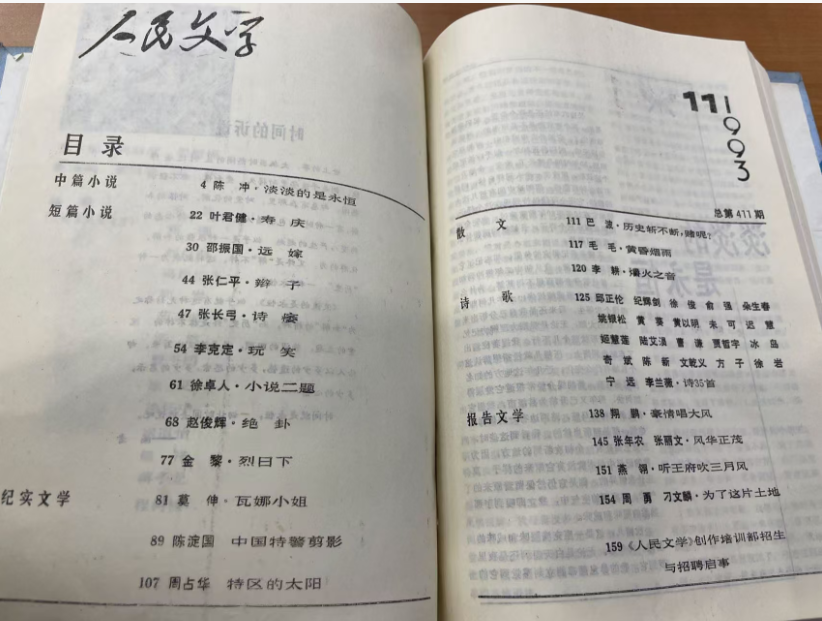 人民文学
目录
中篇小说 4 陈 冲·淡淡的是永恒
短篇小说 22 叶君健·寿 庆
30 邵振国·远 嫁
44 张仁平·辫 子
47 张长弓·诗
54 李克定·玩 笑
61 徐卓人·小说二题
68 赵俊辉·绝 卦
77 金 黎·烈日下
纪实文学 81 莫 伸·瓦娜小姐
89 陈淀国 中国特警剪影
107 周占华 特区的太阳
11
1993
总第411期
散 文 111 巴 波·历史斩不断,赌呢?
117 毛 毛·黄昏烟雨
120 李 耕·爝火之音
诗 歌 125 邱正伦 纪辉剑 徐 俊 俞 强 朵生春
姚银松 黄 葵 黄以明 未 可 远 慧
姬慧莲 陆艾涢 曹 谦 贾哲宇 冰 岛
奇 斌 陈 新 文乾义 方 子 徐 岩
宁 远 李兰薇·诗35首
报告文学 138 翔 鹏·豪情唱大风
145 张年农 张丽文·风华正茂
151 燕 翎·听王府吹三月风
154 周 勇 刁文麟·为了这片土地
159 《人民文学》创作培训部招生
与招聘启事